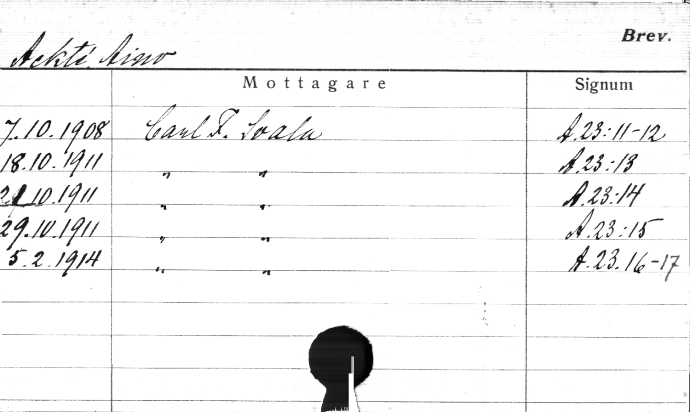 Brev.
Ackté Aino
Mottagare Signum
7.10.1908 Carl F. Svala A.23:11-12
18.10.1911 " " A.23:13
21.10.1911 " " A.23:14
29.10.1911 " " A.23:15
5.2.1914 " " A.23.16-17